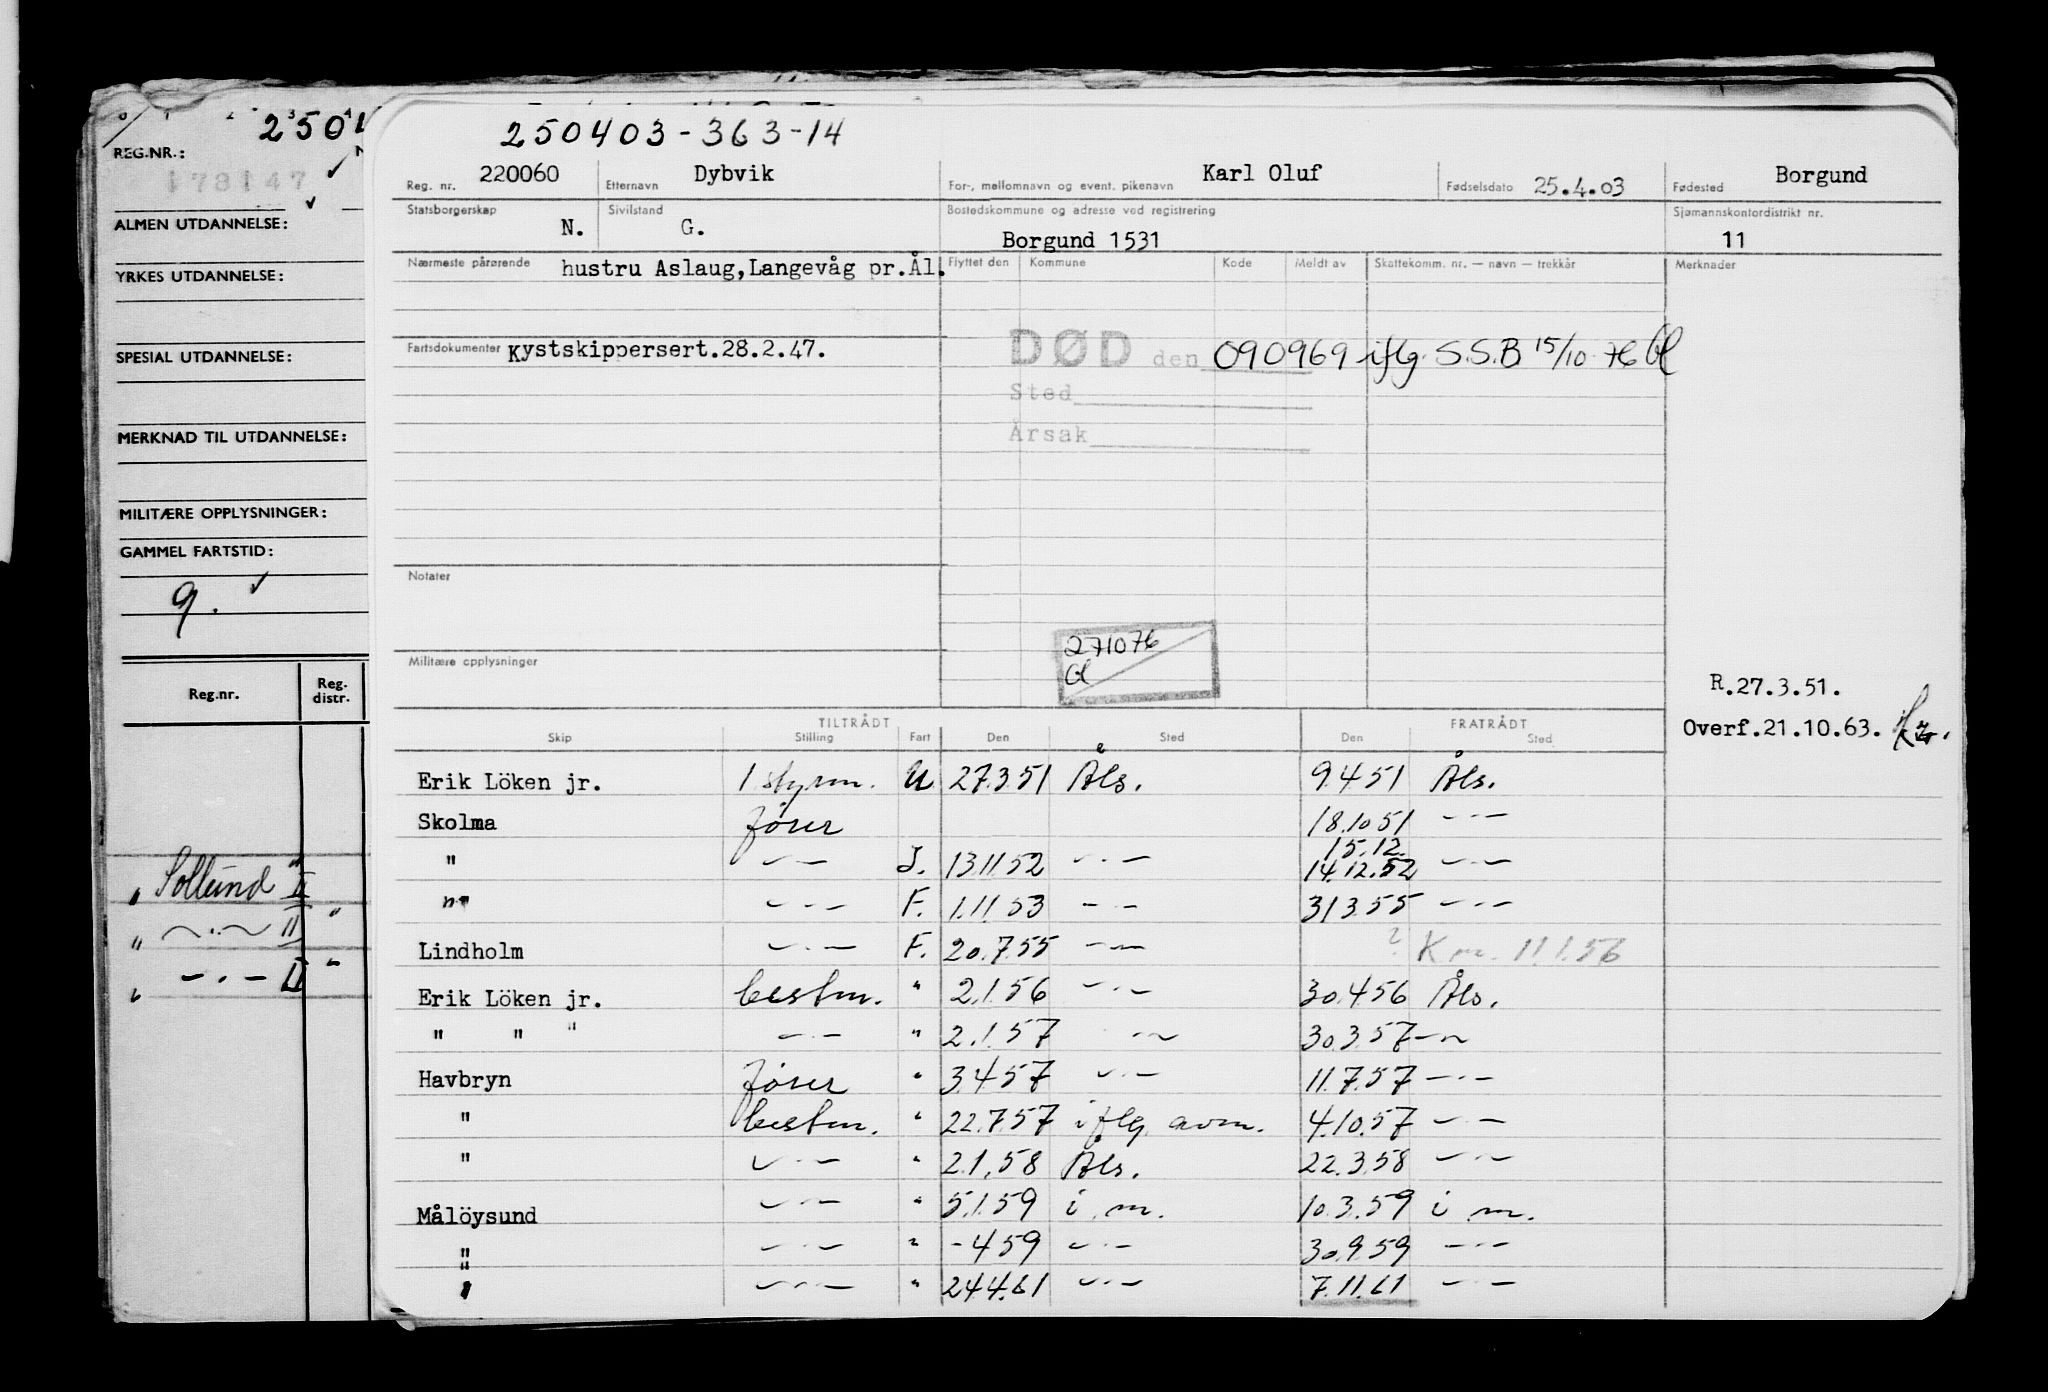 250403-363-14
Reg. nr. 220060 Etternavn Dybvik For-, mellomnavn og event. pikenavn Karl Oluf Fødselsdato 25.4.03 Fødested Borgund
Statsborgerskap N. Sivilstand G. Bostedskommune og adresse ved registrering Borgund 1531 Sjømannskontordistrikt nr. 11
Nærmeste pårørende hustru Aslaug,Langevåg pr.Ål. Flyttet den Kommune Kode Meldt av Skattekomm. nr. — navn — trekkår Merknader
Fartsdokumenter Kystskippersert.28.2.47. DØD den 090969 iflg. S.S.B 15/10-76
Sted
Årsak
Notater
271076
Militære opplysninger
R.27.3.51.
Overf.21.10.63.
TILTRÅDT FRATRÅDT
Skip Stilling Fart Den Sted Den Sted
Erik Löken jr. 1 styrm. U 27.3.51 Åls. 9.4.51 Åls.
Skolma fører 18.10.51 —·—
15.12.
" —·— I. 13.11.52 —·— 14.12.52 —·—
" —·— F. 1.11.53 —·— 31.3.55 —·—
Lindholm —·— F. 20.7.55 —·— ? 11.1.56
Erik Löken jr. bestm. " 2.1.56 —·— 30.4.56 Åls.
" " " —·— " 2.1.57 —·— 30.3.57 —·—
Havbryn fører " 3.4.57 —·— 11.7.57 —·—
" bestm. " 22.7.57 iflg. avm. 4.10.57 —·—
" —·— " 2.1.58 Åls. 22.3.58 —·—
Målöysund —·— " 5.1.59 i.m. 10.3.59 i.m.
" —·— " -4.59 —·— 30.9.59 —·—
" —·— " 24.4.61 —·— 7.11.61 —·—
REG.NR.: 2504
178147
ALMEN UTDANNELSE:
YRKES UTDANNELSE:
SPESIAL UTDANNELSE:
MERKNAD TIL UTDANNELSE:
MILITÆRE OPPLYSNINGER:
GAMMEL FARTSTID:
9.
Reg.nr. Reg. distr.
" Sollund II "
" —·— II "
" —·— II "